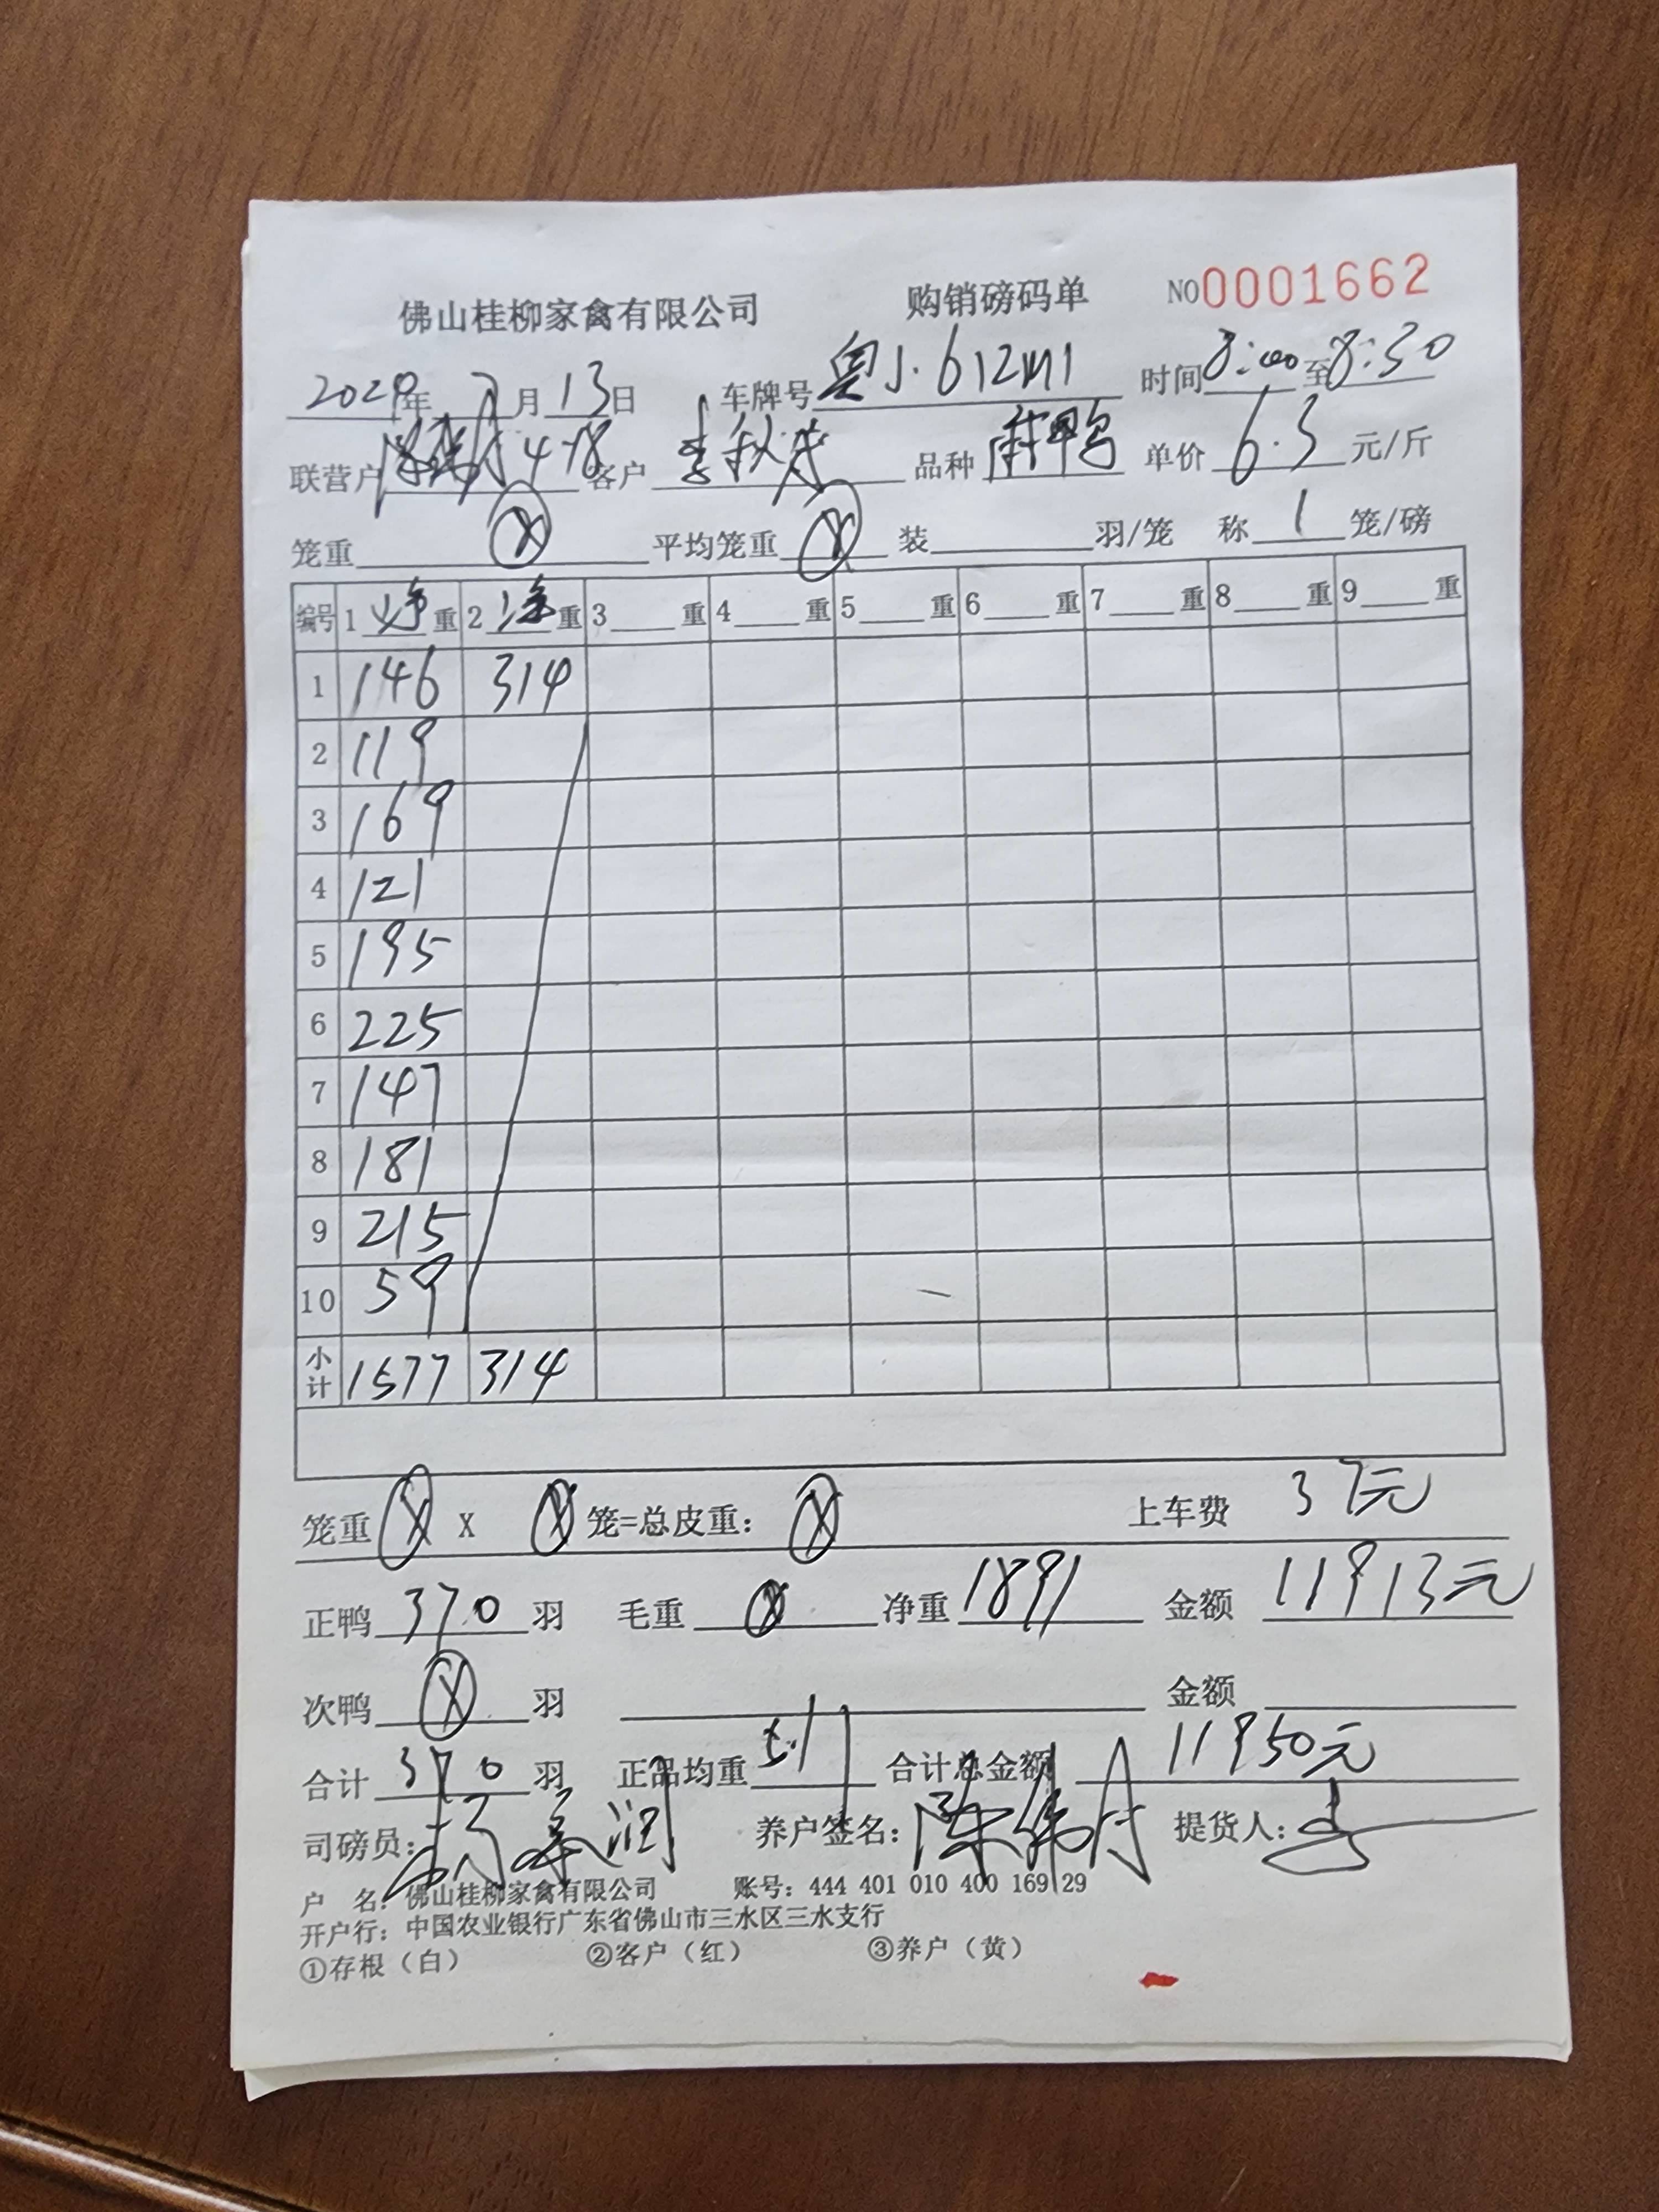 佛山桂柳家禽有限公司 购销磅码单 NO0001662
2024年 7月13日 车牌号 粤J·612M1 时间8:00至8:30
联营户 478 客户 李 品种 麻鸭 单价 6.3 元/斤
笼重 平均笼重 装 羽/笼 称 1 笼/磅
编号 1 净 重 2 净 重 3 重 4 重 5 重 6 重 7 重 8 重 9 重
1 146 314
2 119
3 169
4 121
5 195
6 225
7 147
8 181
9 215
10 59
小计 1577 314
笼重 X 笼=总皮重: 上车费 37元
正鸭 370 羽 毛重 净重 1891 金额 11913元
次鸭 羽 金额
合计 370 羽 正品均重 5.11 合计总金额 11950元
司磅员: 养户签名: 陈伟 提货人:
户 名: 佛山桂柳家禽有限公司 账号: 444 401 010 400 169 29
开户行: 中国农业银行广东省佛山市三水区三水支行
①存根（白） ②客户（红） ③养户（黄）